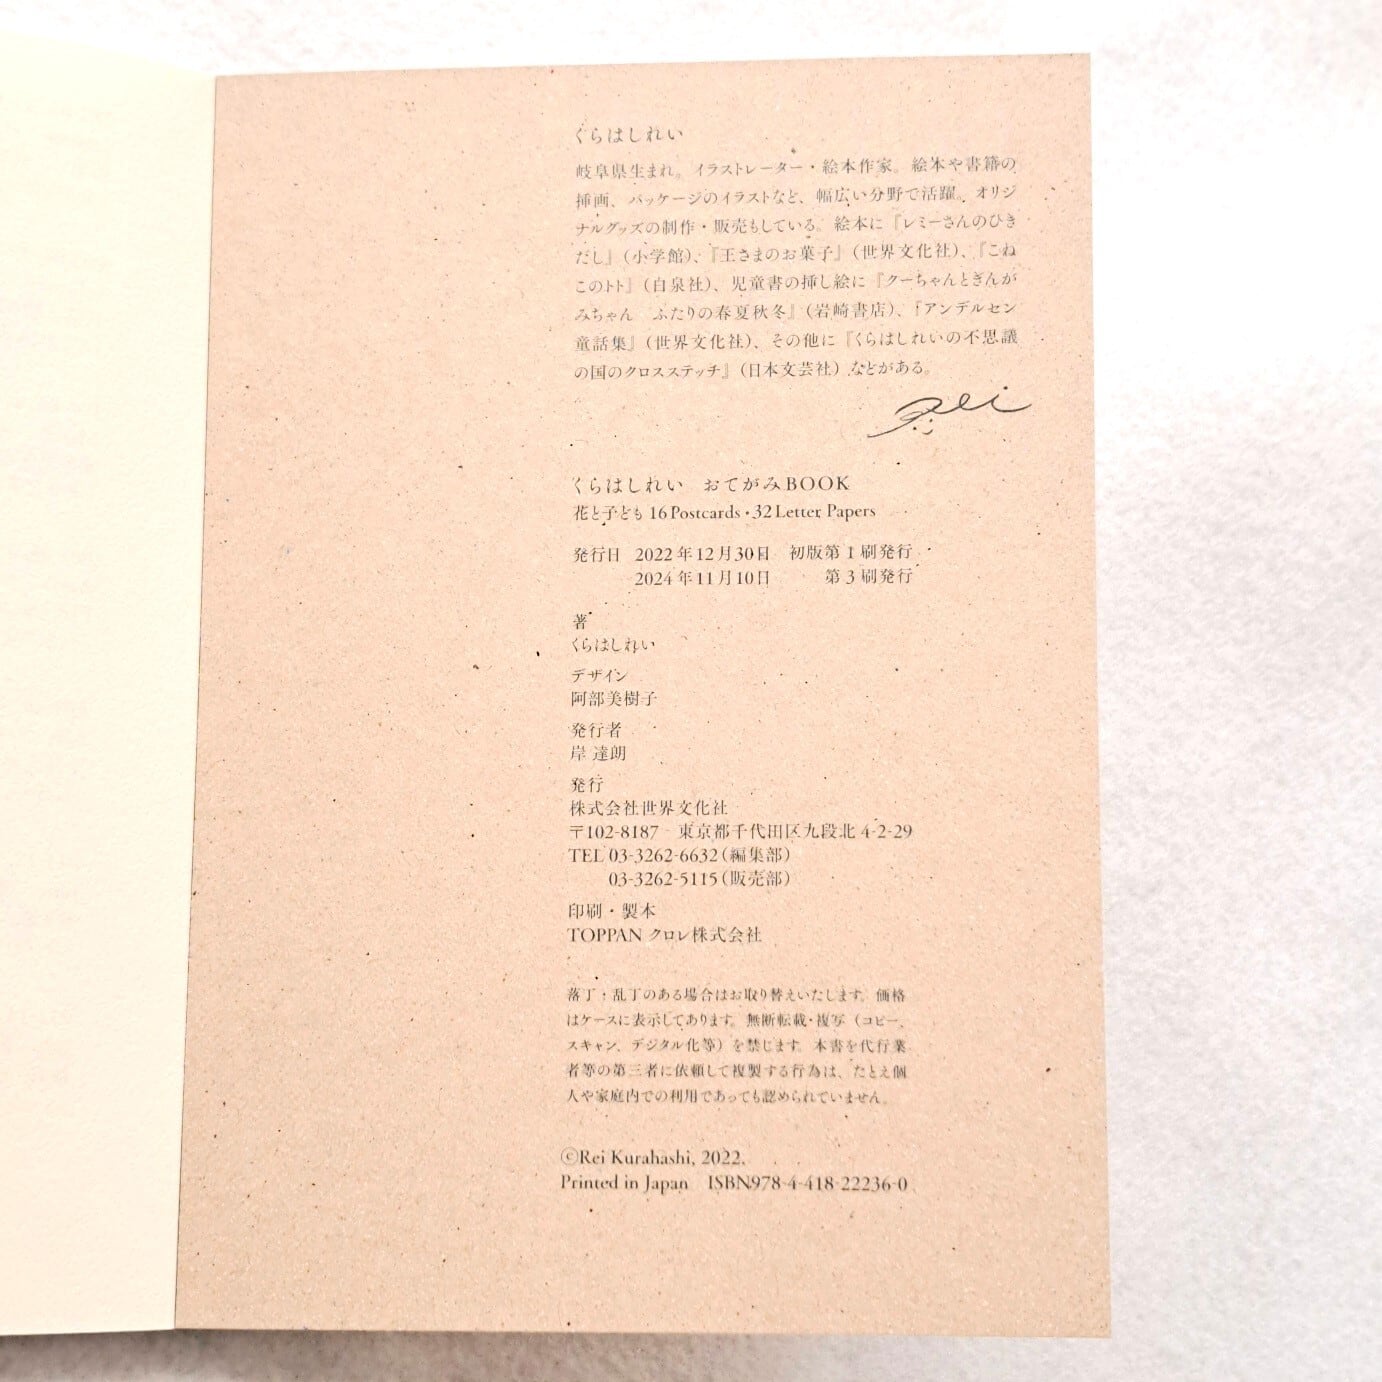 くらはしれい
岐阜県生まれ。イラストレーター・絵本作家。絵本や書籍の
挿画、パッケージのイラストなど、幅広い分野で活躍。オリジ
ナルグッズの制作・販売もしている。絵本に『レミーさんのひき
だし』（小学館）、『王さまのお菓子』（世界文化社）、『こね
このトト』（白泉社）、児童書の挿し絵に『クーちゃんとぎんが
みちゃん　ふたりの春夏秋冬』（岩崎書店）、『アンデルセン
童話集』（世界文化社）、その他に『くらはしれいの不思議
の国のクロスステッチ』（日本文芸社）などがある。
Rei
くらはしれい　おてがみBOOK
花と子ども 16 Postcards・32 Letter Papers
発行日　2022年12月30日　初版第1刷発行
2024年11月10日　第3刷発行
著
くらはしれい
デザイン
阿部美樹子
発行者
岸 達朗
発行
株式会社世界文化社
〒102-8187　東京都千代田区九段北 4-2-29
TEL 03-3262-6632（編集部）
03-3262-5115（販売部）
印刷・製本
TOPPANクロレ株式会社
落丁・乱丁のある場合はお取り替えいたします。価格
はケースに表示してあります。無断転載・複写（コピー、
スキャン、デジタル化等）を禁じます。本書を代行業
者等の第三者に依頼して複製する行為は、たとえ個
人や家庭内での利用であっても認められていません。
©Rei Kurahashi, 2022.
Printed in Japan　ISBN978-4-418-22236-0